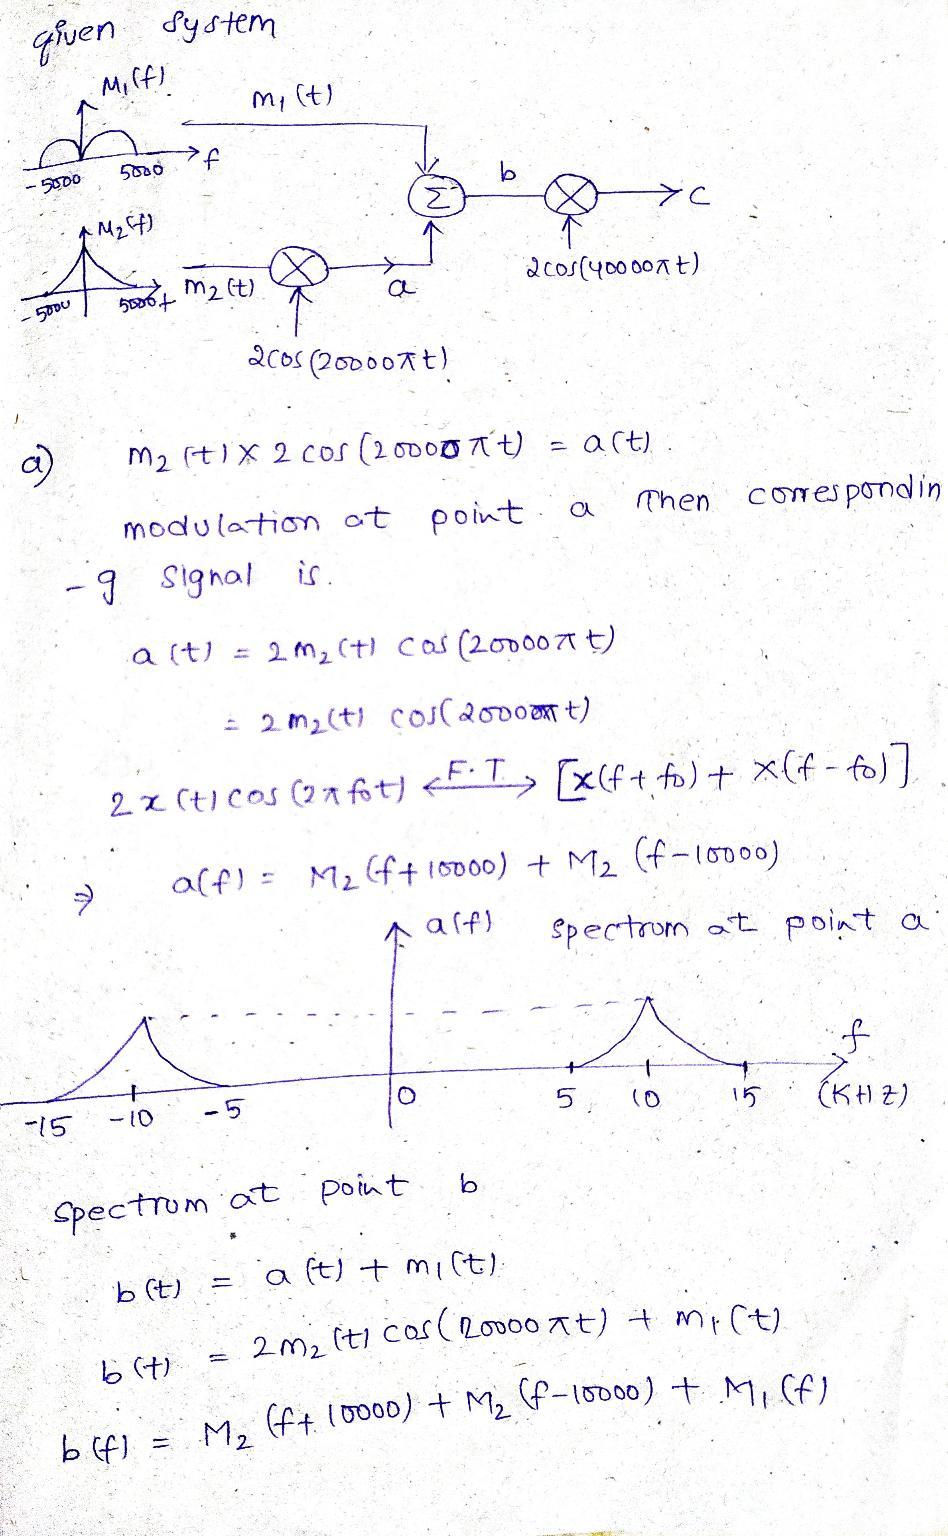 given system
M₁(f)
m₁(t)
f
-5000 5000
b
Σ
c
M₂(f)
2cos(40000πt)
-5000 5000 f
m₂(t)
a
2cos(20000πt)
a) m₂(t) × 2 cos(20000πt) = a(t).
modulation at point a Then correspondin
-g signal is.
a(t) = 2m₂(t) cos(20000πt)
= 2m₂(t) cos(20000πt)
2x(t) cos(2πf₀t) <—F.T—> [x(f+f₀) + x(f-f₀)]
⇒ a(f) = M₂(f+10000) + M₂(f-10000)
a(f) spectrom at point a
f
-15 -10 -5 0 5 10 15 (KHZ)
spectrom at point b
b(t) = a(t) + m₁(t).
b(t) = 2m₂(t) cos(20000πt) + m₁(t)
b(f) = M₂(f+10000) + M₂(f-10000) + M₁(f)